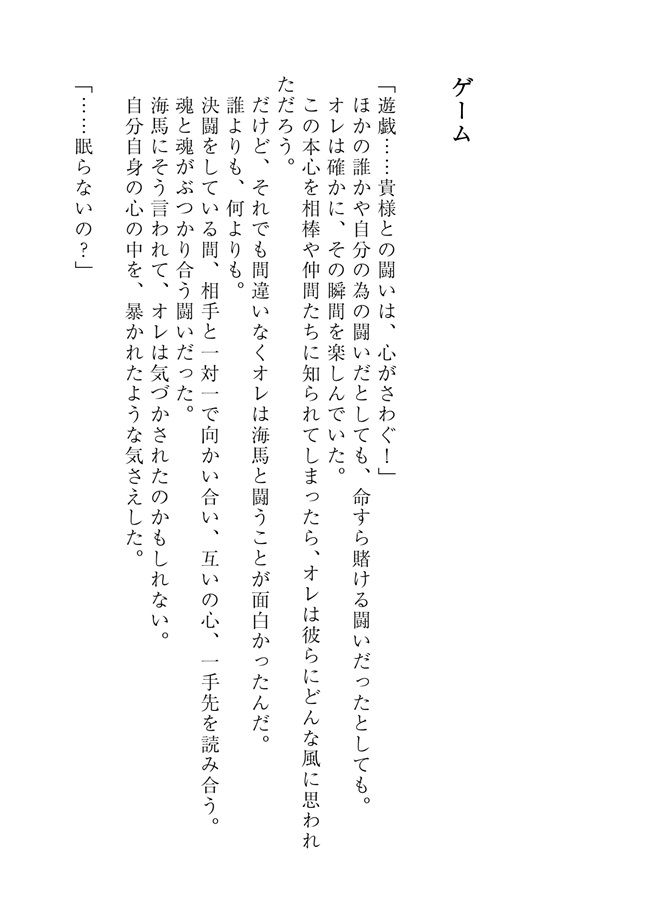 ゲーム
「遊戯……貴様との闘いは、心がさわぐ！」
ほかの誰かや自分の為の闘いだとしても、命すら賭ける闘いだったとしても。
オレは確かに、その瞬間を楽しんでいた。
この本心を相棒や仲間たちに知られてしまったら、オレは彼らにどんな風に思われ
ただろう。
だけど、それでも間違いなくオレは海馬と闘うことが面白かったんだ。
誰よりも、何よりも。
決闘をしている間、相手と一対一で向かい合い、互いの心、一手先を読み合う。
魂と魂がぶつかり合う闘いだった。
海馬にそう言われて、オレは気づかされたのかもしれない。
自分自身の心の中を、暴かれたような気さえした。
「……眠らないの？」